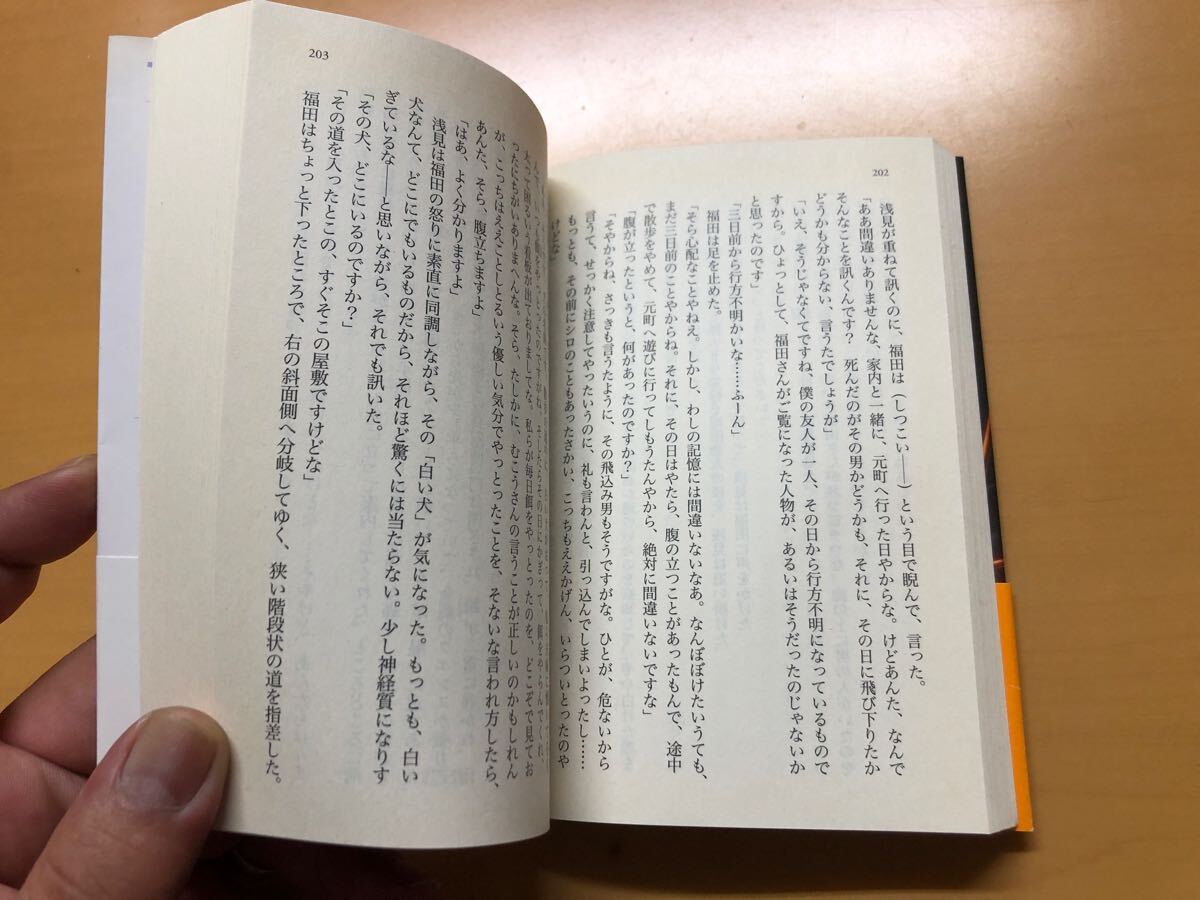 202
浅見が重ねて訊くのに、福田は（しつこい――）という目で睨んで、言った。
「ああ間違いありませんな、家内と一緒に、元町へ行った日やからな。けどあんた、なんで
そんなことを訊くんです？　死んだのがその男かどうかも、それに、その日に飛び下りたか
どうかも分からない、言うたでしょうが」
「いえ、そうじゃなくてですね、僕の友人が一人、その日から行方不明になっているもので
すから。ひょっとして、福田さんがご覧になった人物が、あるいはそうだったのじゃないか
と思ったのです」
「三日前から行方不明かいな……ふーん」
福田は足を止めた。
「そら心配なことやねえ。しかし、わしの記憶には間違いないなあ。なんぼぼけたいうても、
まだ三日前のことやからね。それに、その日はやたら、腹の立つことがあったもんで、途中
で散歩をやめて、元町へ遊びに行ってしもうたんやから、絶対に間違いないですな」
「腹が立ったというと、何があったのですか？」
「そやからね、さっきも言うたように、その飛込み男もそうですがな。ひとが、危ないから
言うて、せっかく注意してやったいうのに、礼も言わんと、引っ込んでしまいよったし……
もっとも、その前にシロのこともあったさかい、こっちもええかげん、いらついとったのや
けどな」
203
ったにちがいありまへんな。そら、たしかに、むこうさんの言うことが正しいのかもしれん
が、こっちはええことしとるいう優しい気分でやっとったことを、そないな言われ方したら、
あんた、そら、腹立ちますよ」
「はあ、よく分かりますよ」
浅見は福田の怒りに素直に同調しながら、その「白い犬」が気になった。もっとも、白い
犬なんて、どこにでもいるものだから、それほど驚くには当たらない。少し神経質になりす
ぎているな――と思いながら、それでも訊いた。
「その犬、どこにいるのですか？」
「その道を入ったとこの、すぐそこの屋敷ですけどな」
福田はちょっと下ったところで、右の斜面側へ分岐してゆく、狭い階段状の道を指差した。